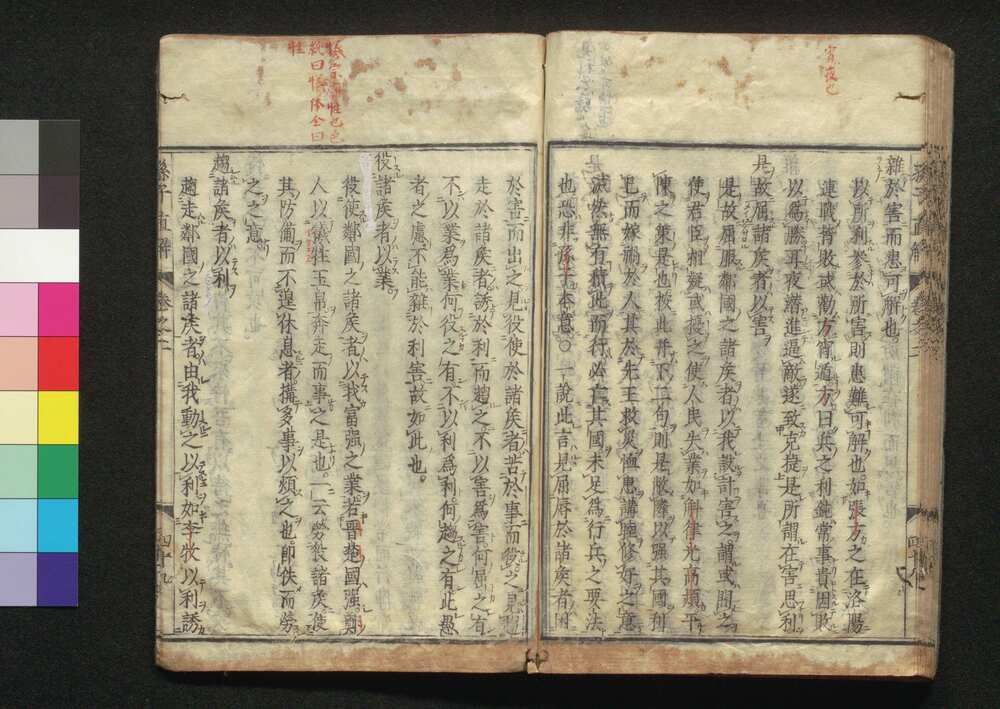 雜於害而患可解也
以所利參於所害則患難可解也如張方之在洛陽
連戰皆敗或勸方宵遁方曰兵之利鈍常事貴因敗
以爲勝耳夜潛進逼敵遂致克捷是所謂在害思利
是故屈諸矦者以害
是故屈服鄰國之諸矦者以我設計害之謂或間之
使君臣相疑或撓之使人民失業如斛律光高熲平
陳之策是也按此并下二句則是敗鄰以强其國利
已而嫁禍於人其於先王救災恤患講睦修好之意
滅然無有循此而行必亡其國未足爲行兵之要法
也恐非孫子本意〇一說此言見屈辱於諸矦者因
於害而出之見役使於諸矦者苦於事而役之見趨
走於諸矦者誘於利而趨之不以害爲害何屈之有
不以業爲業何役之有不以利爲利何趨之有此愚
者之慮不能雜於利害故如此也
役諸矦者以業
役使鄰國之諸矦者以我富强之業若晉楚國强鄭
人以犧牲玉帛奔走而事之是也一云勞役諸矦使
其防備而不遑休息者搆多事以煩之也即佚而勞
之之意
趨諸矦者以利
趨走鄰國之諸矦者由我動之以利如李牧以利誘
孫子直解
卷之二
四十九
宵夜也